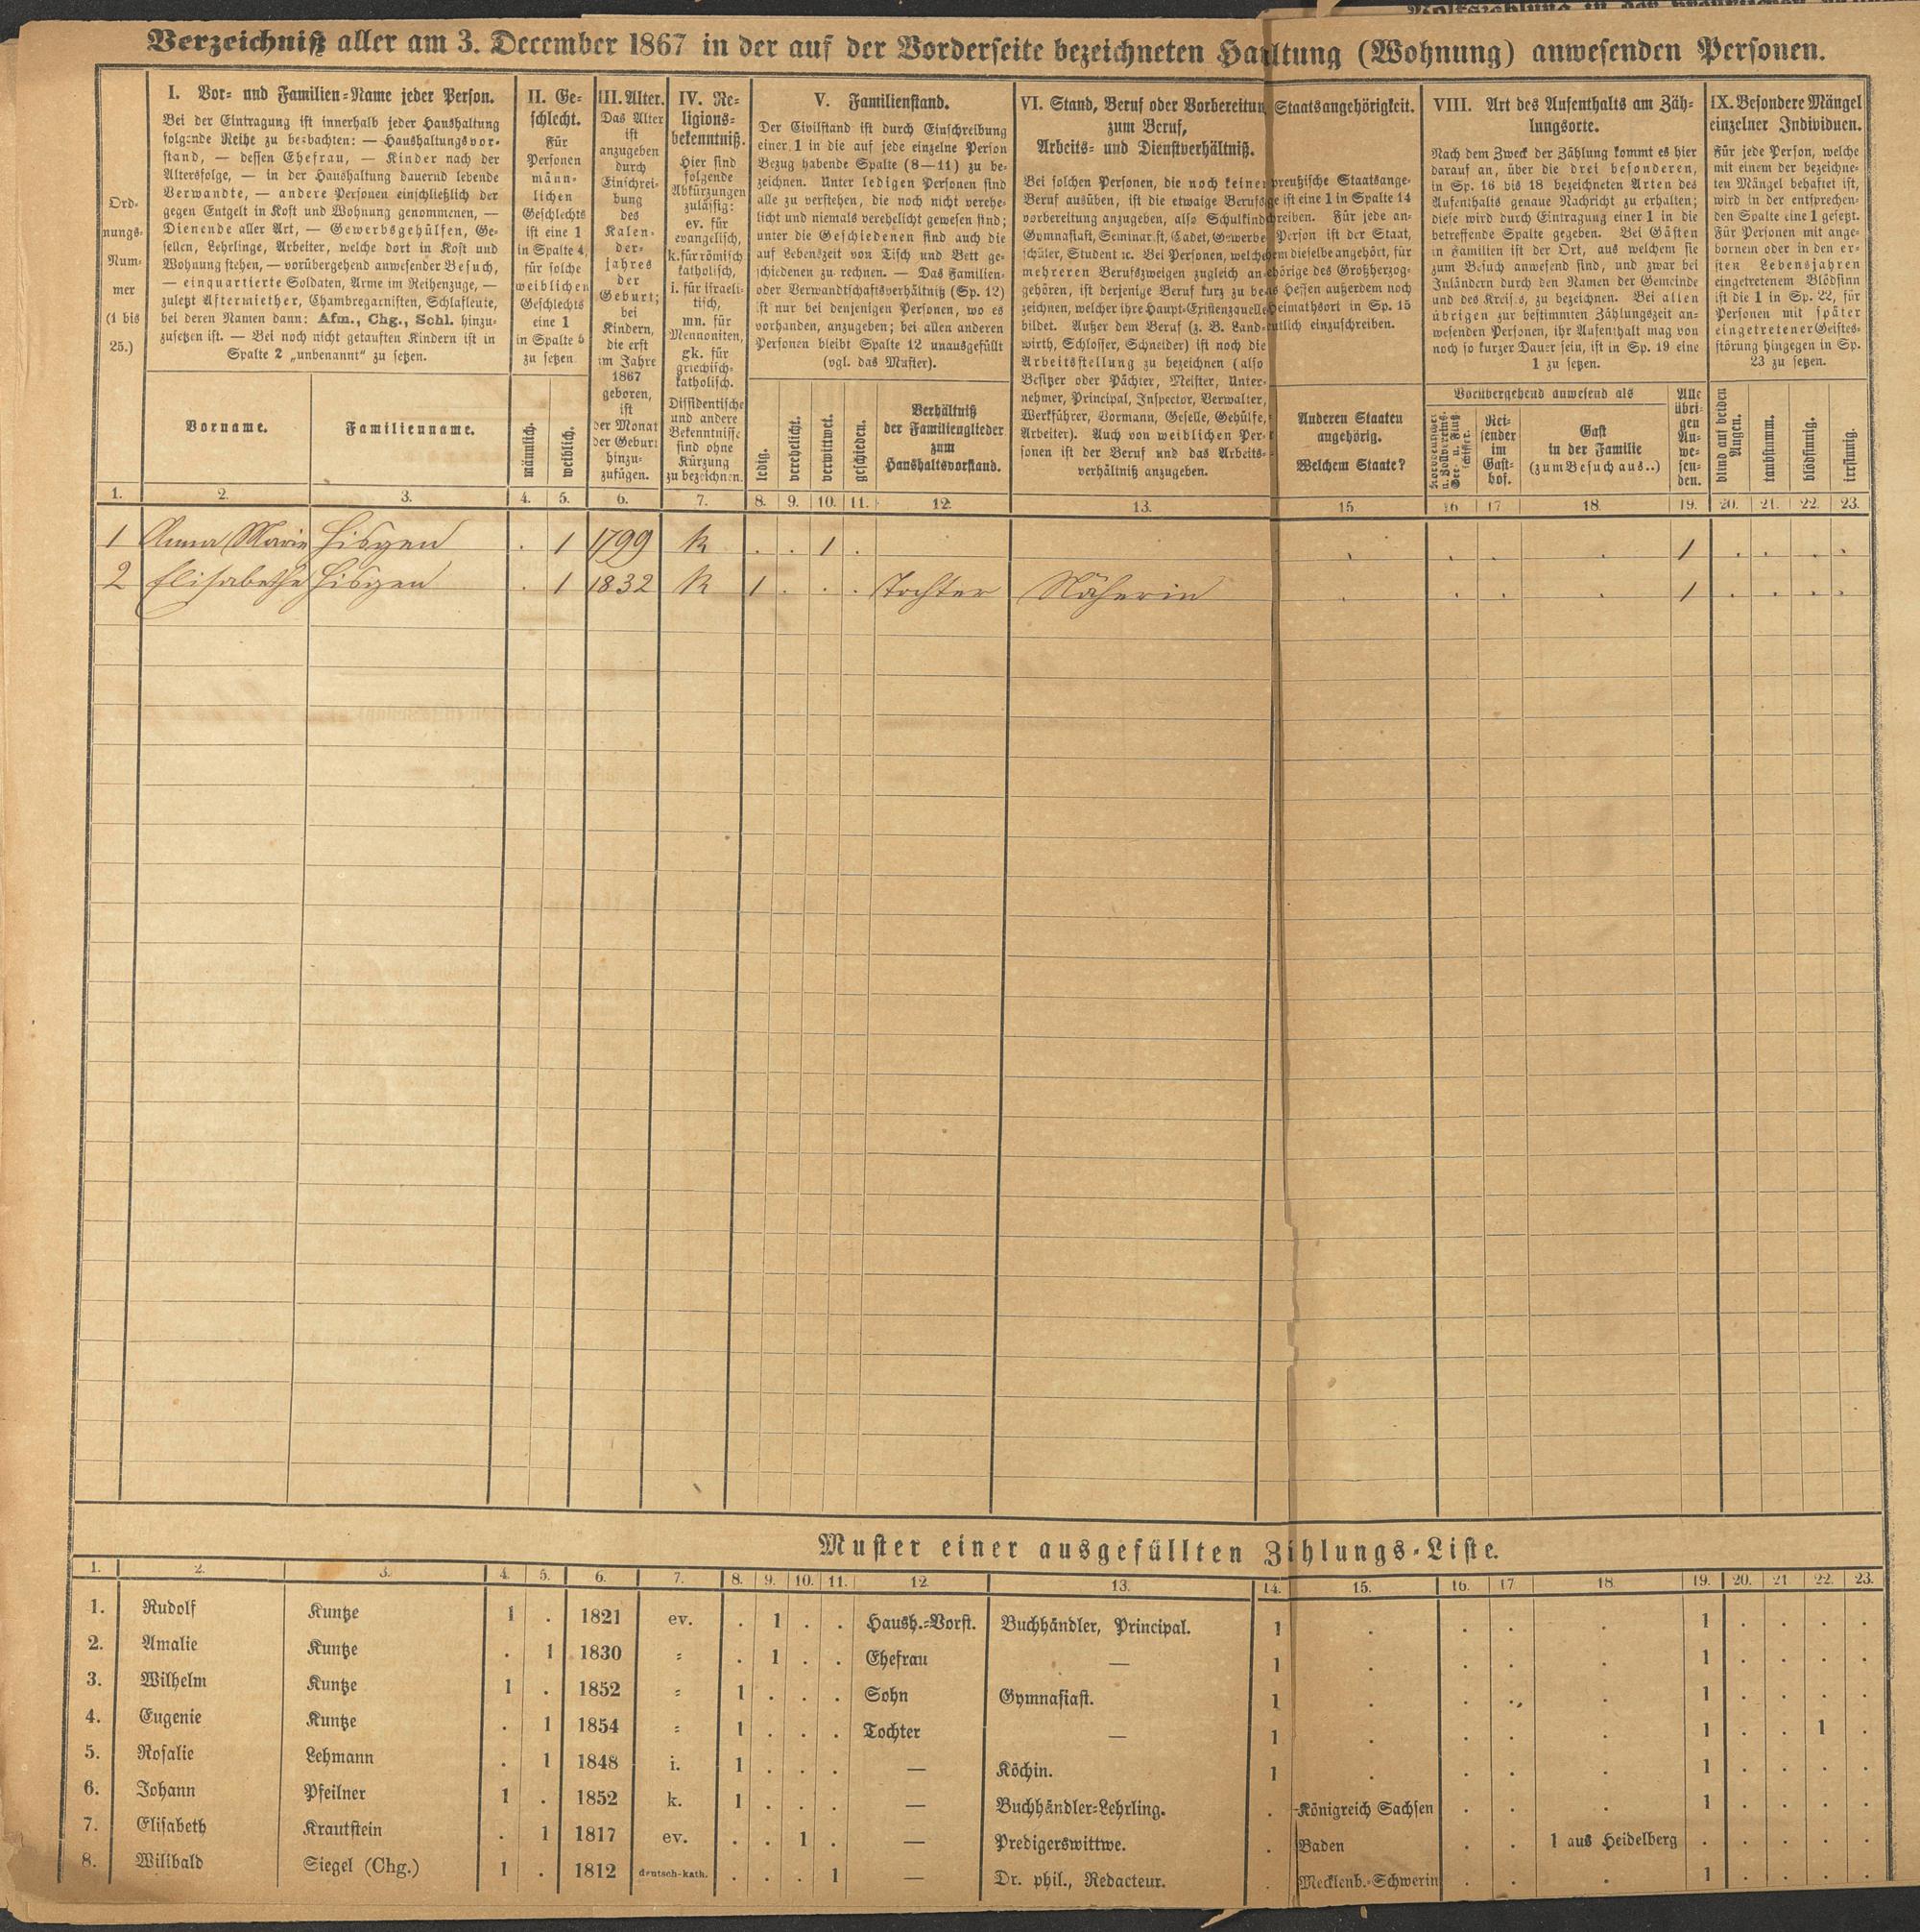 Verzeichniß aller am 3. December 1867 in der auf der Vorderseite bezeichneten Haultung (Wohnung) anwesenden Personen.
Ord-
nungs-
Num-
mer
(1 bis
25.)
I. Vor- und Familien-Name jeder Person.
Bei der Eintragung ist innerhalb jeder Haushaltung
folgende Reihe zu beobachten: — Haushaltungsvor-
stand, — dessen Ehefrau, — Kinder nach der
Altersfolge, — in der Haushaltung dauernd lebende
Verwandte, — andere Personen einschließlich der
gegen Entgelt in Kost und Wohnung genommenen, —
Dienende aller Art, — Gewerbsgehülfen, Ge-
sellen, Lehrlinge, Arbeiter, welche dort in Kost und
Wohnung stehen, — vorübergehend anwesender Besuch,
— einquartierte Soldaten, Arme im Reihenzuge, —
zuletzt Aftermiether, Chambregarnisten, Schlafleute,
bei deren Namen dann: Afm., Chg., Schl. hinzu-
zusetzen ist. — Bei noch nicht getauften Kindern ist in
Spalte 2 „unbenannt“ zu setzen.
Vorname.
Familienname.
II. Ge-
schlecht.
Für
Personen
männ-
lichen
Geschlechts
ist eine 1
in Spalte 4,
für solche
weiblichen
Geschlechts
eine 1
in Spalte 5
zu setzen
männlich.
weiblich.
III. Alter.
Das Alter
ist
anzugeben
durch
Einschrei-
bung
des
Kalen-
der-
jahres
der
Geburt;
bei
Kindern,
die erst
im Jahre
1867
geboren,
ist
der Monat
der Geburt
hinzu-
zufügen.
IV. Re-
ligions-
bekenntniß.
Hier sind
folgende
Abkürzungen
zulässig:
ev. für
evangelisch,
k. für römisch
katholisch,
i. für israeli-
tisch,
mn. für
Mennoniten,
gk. für
griechisch-
katholisch.
Dissidentische
und andere
Bekenntnisse
sind ohne
Kürzung
zu bezeichnen.
V. Familienstand.
Der Civilstand ist durch Einschreibung
einer 1 in die auf jede einzelne Person
Bezug habende Spalte (8—11) zu be-
zeichnen. Unter ledigen Personen sind
alle zu verstehen, die noch nicht verehe-
licht und niemals verehelicht gewesen sind;
unter die Geschiedenen sind auch die
auf Lebenszeit von Tisch und Bett ge-
schiedenen zu rechnen. — Das Familien-
oder Verwandtschaftsverhältniß (Sp. 12)
ist nur bei denjenigen Personen, wo es
vorhanden, anzugeben; bei allen anderen
Personen bleibt Spalte 12 unausgefüllt
(vgl. das Muster).
ledig.
verehelicht.
verwittwet.
geschieden.
Verhältniß
der Familienglieder
zum
Haushaltsvorstand.
VI. Stand, Beruf oder Vorbereitun
zum Beruf,
Arbeits- und Dienstverhältniß.
Bei solchen Personen, die noch keinen
Beruf ausüben, ist die etwaige Berufs
vorbereitung anzugeben, also Schulkind
Gymnasiast, Seminarist, Cadet, Gewerbe
schüler, Student ꝛc. Bei Personen, welche
mehreren Berufszweigen zugleich an-
gehören, ist derjenige Beruf kurz zu be-
zeichnen, welcher ihre Haupt-Existenzquelle
bildet. Außer dem Beruf (z. B. Land-
wirth, Schlosser, Schneider) ist noch die
Arbeitsstellung zu bezeichnen (also
Besitzer oder Pächter, Meister, Unter-
nehmer, Principal, Inspector, Verwalter,
Werkführer, Vormann, Geselle, Gehülfe,
Arbeiter). Auch von weiblichen Per-
sonen ist der Beruf und das Arbeits-
verhältniß anzugeben.
Staatsangehörigkeit.
preußische Staatsange-
ist eine 1 in Spalte 14
reiben. Für jede an-
Person ist der Staat,
em dieselbe angehört, für
hörige des Großherzog-
s Hessen außerdem noch
Heimathsort in Sp. 15
utlich einzuschreiben.
Anderen Staaten
angehörig.
Welchem Staate?
VIII. Art des Aufenthalts am Zäh-
lungsorte.
Nach dem Zweck der Zählung kommt es hier
darauf an, über die drei besonderen,
in Sp. 16 bis 18 bezeichneten Arten des
Aufenthalts genaue Nachricht zu erhalten;
diese wird durch Eintragung einer 1 in die
betreffende Spalte gegeben. Bei Gästen
in Familien ist der Ort, aus welchem sie
zum Besuch anwesend sind, und zwar bei
Inländern durch den Namen der Gemeinde
und des Kreises, zu bezeichnen. Bei allen
übrigen zur bestimmten Zählungszeit an-
wesenden Personen, ihr Aufenthalt mag von
noch so kurzer Dauer sein, ist in Sp. 19 eine
1 zu setzen.
Vorübergehend anwesend als
Rei-
sender
im
Gast-
hof.
Gast
in der Familie
(zum Besuch aus..)
Alle
übri-
gen
An-
we-
sen-
den.
IX. Besondere Mängel
einzelner Individuen.
Für jede Person, welche
mit einem der bezeichne-
ten Mängel behaftet ist,
wird in der entsprechen-
den Spalte eine 1 gesetzt.
Für Personen mit ange-
bornem oder in den er-
sten Lebensjahren
eingetretenem Blödsinn
ist die 1 in Sp. 22, für
Personen mit später
eingetretener Geistes-
störung hingegen in Sp.
23 zu setzen.
blind auf beiden
Augen.
taubstumm.
blödsinnig.
irrsinnig.
1. 2. 3. 4. 5. 6. 7. 8. 9. 10. 11. 12. 13. 15. 16 17 18. 19. 20. 21. 22. 23.
1 Anna Marie Hisgen . 1 1799 k . . 1 . . . . . 1 . . . .
2 Elisabetha Hisgen . 1 1832 k 1 . . . Tochter Näherin . . . . 1 . . . .
Muster einer ausgefüllten Zählungs-Liste.
1. 2. 3. 4. 5. 6. 7. 8. 9. 10. 11. 12. 13. 14. 15. 16. 17 18. 19. 20. 21 22. 23.
1. Rudolf Kuntze 1 . 1821 ev. . 1 . . Haush.-Vorst. Buchhändler, Principal. 1 . . . . 1 . . . .
2. Amalie Kuntze . 1 1830 = . 1 . . Ehefrau — 1 . . . . 1 . . . .
3. Wilhelm Kuntze 1 . 1852 = 1 . . . Sohn Gymnasiast. 1 . . . . 1 . . . .
4. Eugenie Kuntze . 1 1854 = 1 . . . Tochter — 1 . . . . 1 . . 1 .
5. Rosalie Lehmann . 1 1848 i. 1 . . . — Köchin. 1 . . . . 1 . . . .
6. Johann Pfeilner 1 . 1852 k. 1 . . . — Buchhändler-Lehrling. . Königreich Sachsen . . . 1 . . . .
7. Elisabeth Krautstein . 1 1817 ev. . . 1 . — Predigerswittwe. . Baden . . 1 aus Heidelberg . . . . .
8. Wilibald Siegel (Chg.) 1 . 1812 deutsch-kath. . . . 1 — Dr. phil., Redacteur. . Mecklenb.-Schwerin . . . 1 . . . .